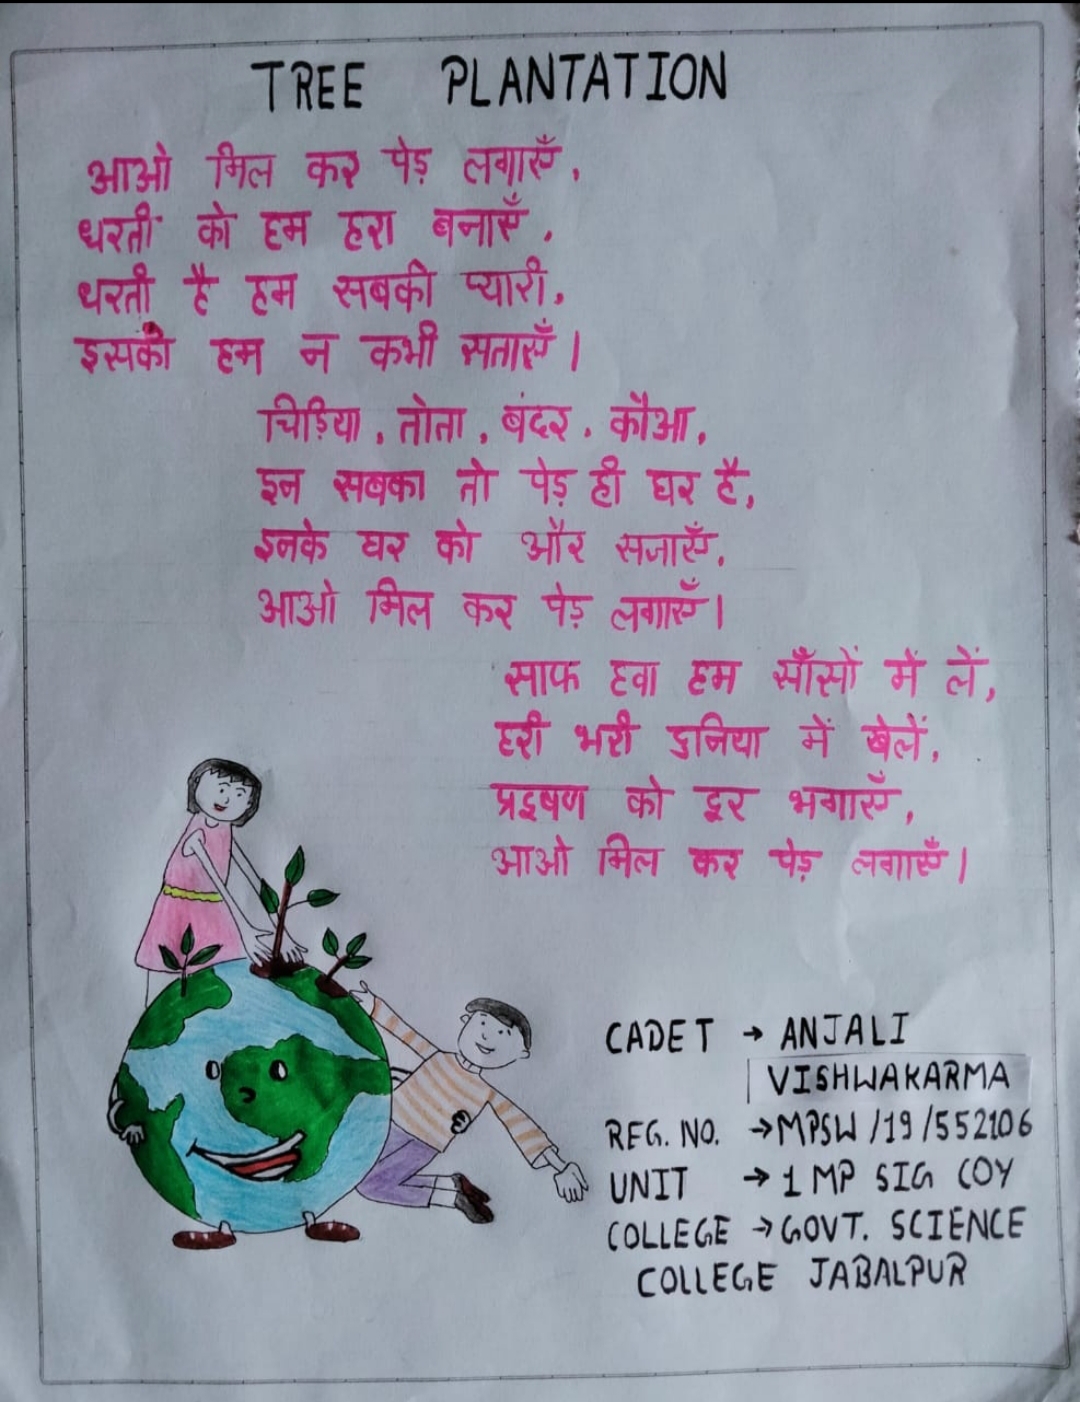 TREE PLANTATION
आओ मिल कर पेड़ लगाएँ,
धरती को हम हरा बनाएँ,
धरती है हम सबकी प्यारी,
इसको हम न कभी सताएँ।
चिड़िया, तोता, बंदर, कौआ,
इन सबका तो पेड़ ही घर है,
इनके घर को और सजाएँ,
आओ मिल कर पेड़ लगाएँ।
साफ हवा हम साँसों में लें,
हरी भरी दुनिया में खेलें,
प्रदूषण को दूर भगाएँ,
आओ मिल कर पेड़ लगाएँ।
CADET → ANJALI
VISHWAKARMA
REG. NO. → MPSW/19/552106
UNIT → 1 MP SIG COY
COLLEGE → GOVT. SCIENCE
COLLEGE JABALPUR